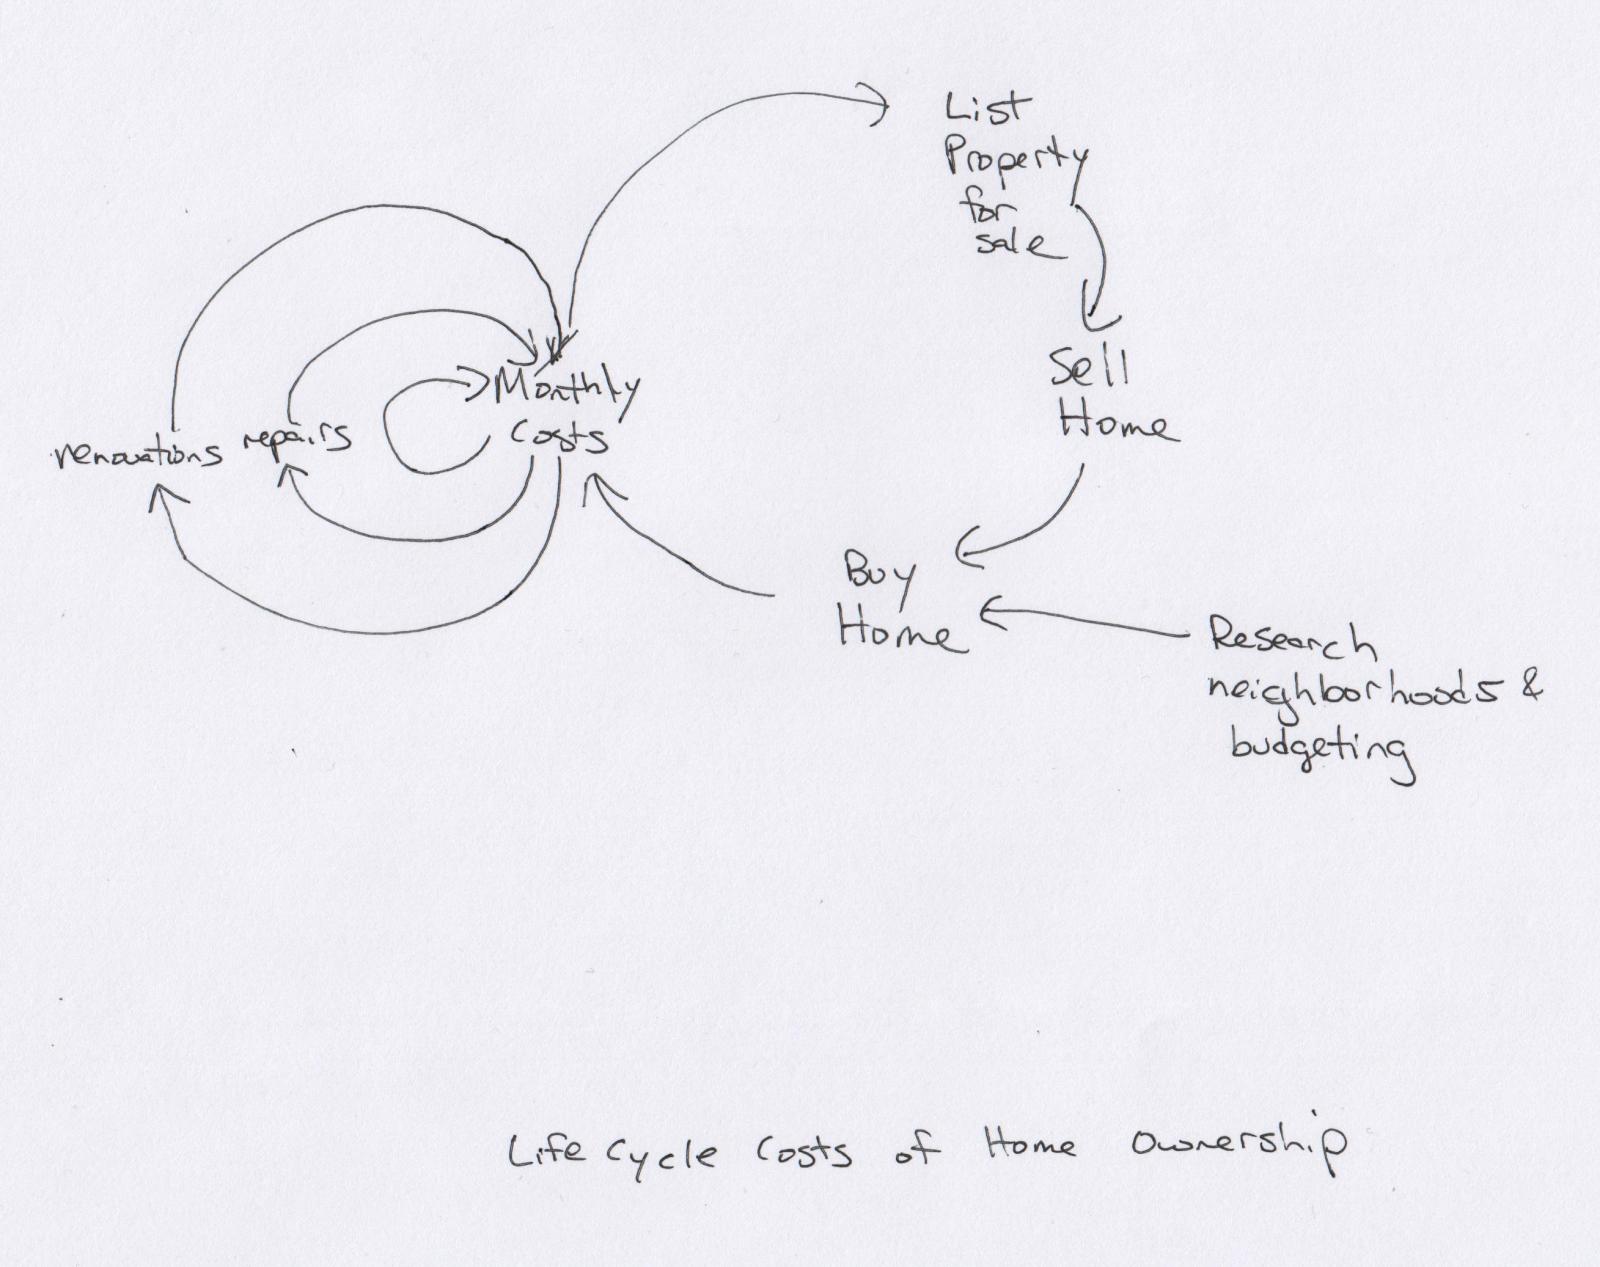 List
Property
for
sale
Sell
Home
Monthly
Costs
repairs
renovations
Buy
Home
Research
neighborhoods &
budgeting
Life Cycle Costs of Home Ownership